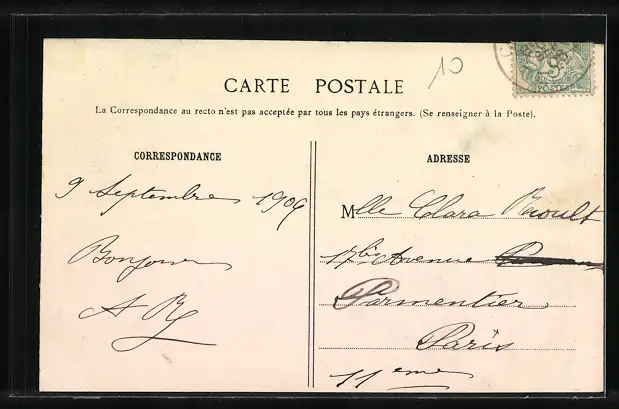 10
CARTE POSTALE
La Correspondance au recto n'est pas acceptée par tous les pays étrangers. (Se renseigner à la Poste).
CORRESPONDANCE
9 Septembre 1906
Bonjour
AR
ADRESSE
Mlle Clara Raoult
17bis Avenue
Parmentier
Paris
11eme